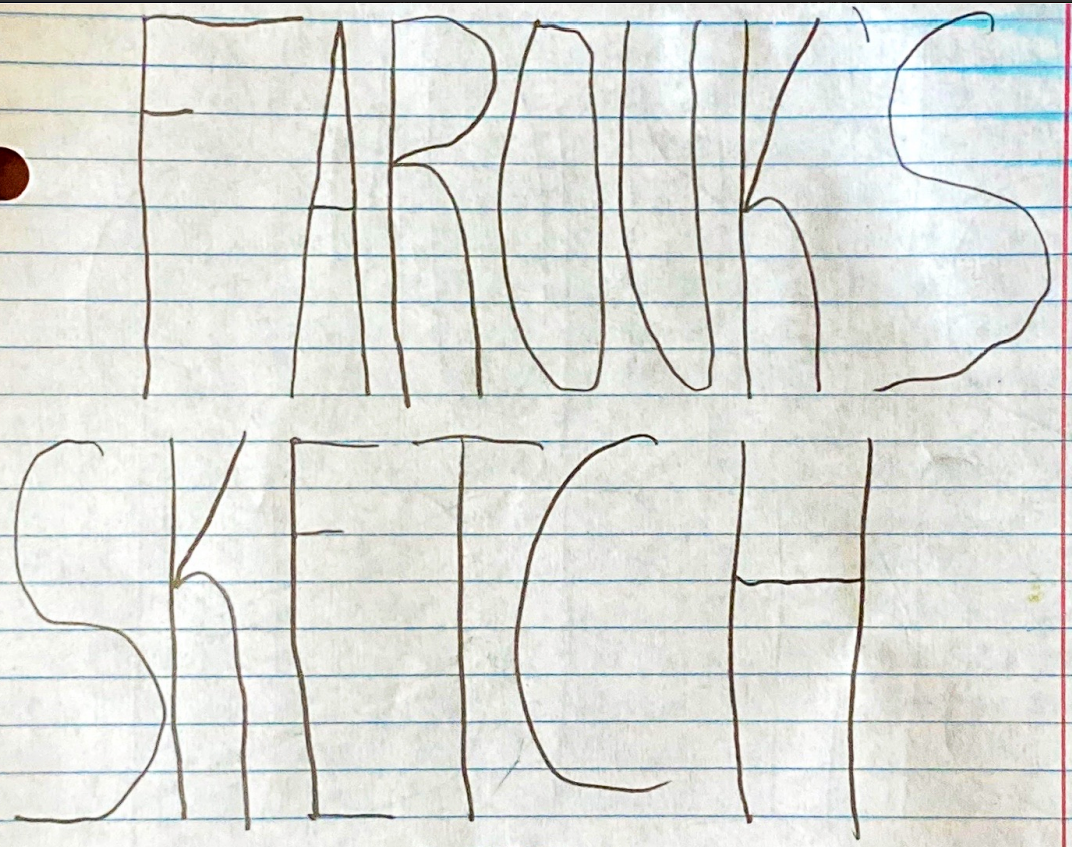 FAROUK'S
SKETCH